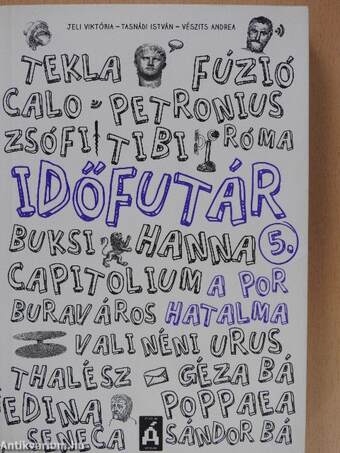 JELI VIKTÓRIA – TASNÁDI ISTVÁN – VÉSZITS ANDREA
TEKLA FÚZIÓ
CALO PETRONIUS
ZSÓFI TIBI RÓMA
IDŐFUTÁR
BUKSI HANNA 5.
CAPITOLIUM A POR
BURAVÁROS HATALMA
VALI NÉNI URUS
THALÉSZ GÉZA BÁ
EDINA POPPAEA
SENECA Á SÁNDOR BÁ
Antikvarium.hu